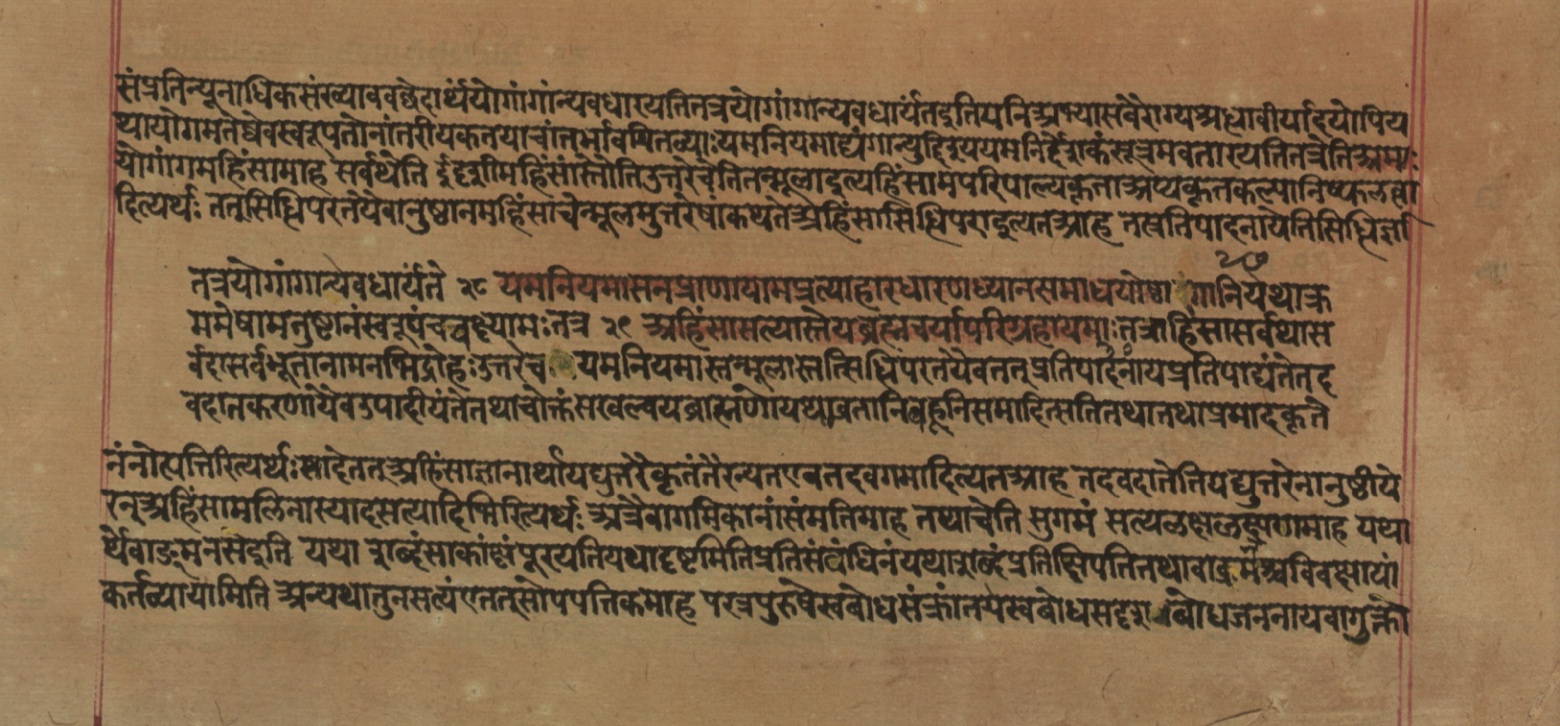 संप्रतिन्यूनाधिकसंख्याव्यवछेदार्थंयोगांगांन्यवधारयतितत्रयोगांगान्यवधार्यंतइतियनिअभ्यासवैराग्यश्रद्धावीर्यादयोपिय
थायोगमतेष्वेवस्वरूपतोनांतरीयकतयाचांतर्भावयितव्याःयमनियमाद्यंगान्युद्दिश्ययमनिर्देशकंसूत्रमवतारयतितत्रेतिअमाः
योगांगमहिंसामाह सर्वथेति ईदृशीमहिंसांस्तौतिउत्तरेचेतितन्मूलाइत्यहिंसामपरिपाल्यकृताअप्यकृतकल्पानिष्फलत्वा
दित्यर्थः तत्सिद्धिपरतयैवानुष्ठानमहिंसाचेन्मूलमुत्तरेषांकथंतेअहिंसासिद्धिपराइत्यतआह तत्प्रतिपादनायेतिसिद्धिर्ज्ञा
तत्रयोगांगान्यवधार्यंते २८ यमनियमासनप्राणायामप्रत्याहारधारणध्यानसमाधयोष्टा गानियथाक्र
ममेषामनुष्ठानंस्वरूपंचवक्ष्यामःतत्र २९ अहिंसासत्यास्तेयब्रह्मचर्यापरिग्रहायमाःतत्राहिंसासर्वथास
र्वदासर्वभूतानामनभिद्रोहःउत्तरेच यमनियमास्तन्मूलास्तत्सिद्धिपरतयैवतत्प्रतिपादनायप्रतिपाद्यंतेतद
वदातकरणायैवउपादीयंतेतथाचोक्तंसखल्वयंब्राह्मणोयथाव्रतानिबहूनिसमादित्सतितथातथाप्रमादकृते
नंनोत्पत्तिरित्यर्थःस्यादेतत्अहिंसाज्ञानार्थायद्युत्तरैकृतंतैरन्यतएवतदवगमादित्यतआह तदवदातेतियद्युत्तरेनानुष्ठीये
रन्अहिंसामलिनास्यादसत्यादिभिरित्यर्थः अत्रैवागमिकानांसंमतिमाह तथाचेति सुगमं सत्यलक्षणमाह यथा
र्थेवाङ्मनसेइति यथा शब्दंसाकांक्षंपूरयतियथादृष्टमितिप्रतिसंबंधिनंयथाशब्दंप्रतिक्षिपतितथावाङ्मनंश्चविवक्षायां
कर्तव्यायामिति अन्यथातुनसत्यंएतत्सोपपत्तिकमाह परत्रपुरुषेस्वबोधसंक्रांतयेस्वबोधसदृश बोधजननायवागुक्तो